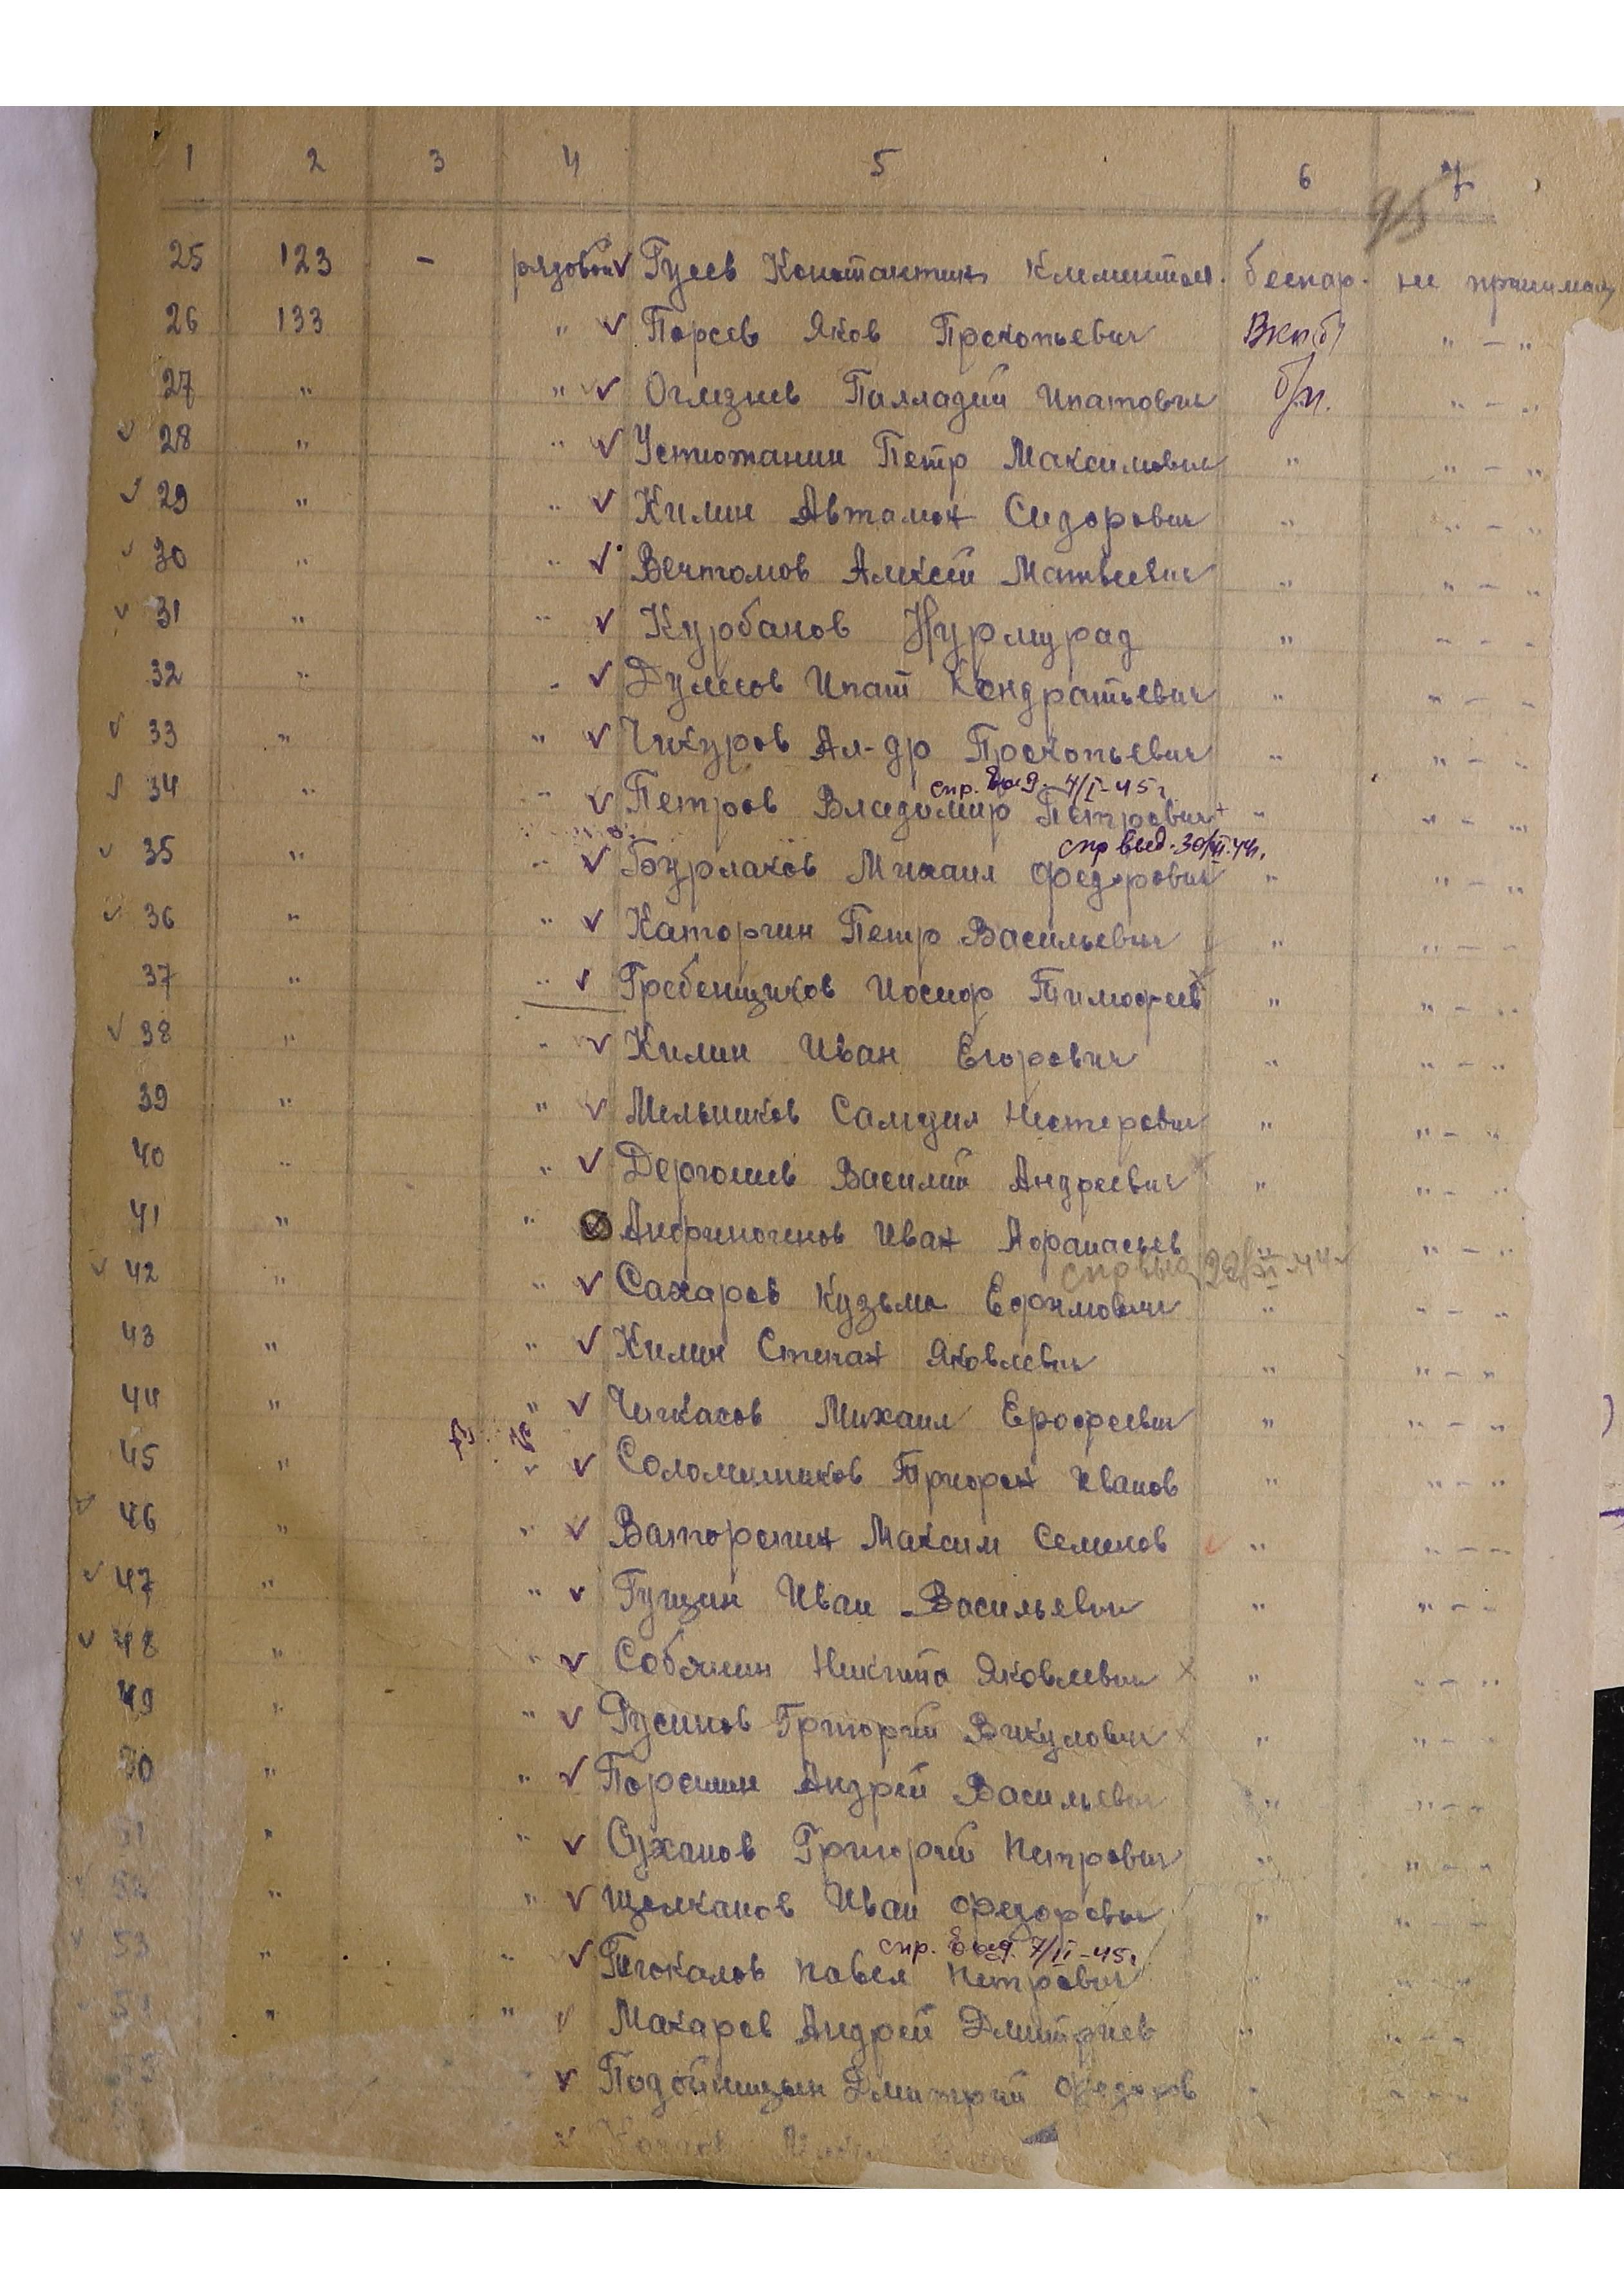 1 2 3 4 5 6 7
95
25 123 - рядовой √ Гусев Константин Климентьев. беспар. не принимал
26 133 " √ Порсев Яков Прокопьевич ВКП(б) " - "
27 " " √ Оглезнев Палладий Ипатович б/п. " - "
√ 28 " " √ Устюжанин Петр Максимович " " - "
√ 29 " " √ Килин Автамон Сидорович " " - "
√ 30 " " √ Вечтомов Алексей Матвеевич " " - "
√ 31 " " √ Курбанов Нурмурад " " - "
32 " " √ Дулесов Ипат Кондратьевич " " - "
√ 33 " " √ Чикуров Ал-др Прокопьевич " " - "
спр. выд. 4/I-45г.
√ 34 " " √ Петров Владимир Петрович " " - "
спр выд. 30/XI.44г.
√ 35 " " √ Бурлаков Михаил Федорович " " - "
√ 36 " " √ Каторгин Петр Васильевич " " - "
37 " " √ Гребенщиков Иосиф Тимофеев " " - "
√ 38 " " √ Килин Иван Егорович " " - "
39 " " √ Мельников Самуил Нестерович " " - "
40 " " √ Василий Андреевич " " - "
41 " " √ Анфиногенов Иван Афанасьев " " - "
спр выд 22/XI-44г
√ 42 " " √ Сахаров Кузьма Ефимович " " - "
43 " " √ Килин Степан Яковлевич " " - "
44 " " √ Чичкасов Михаил Ерофеевич " " - "
45 " " √ Соломенников Трифон Иванов " " - "
√ 46 " " √ Ваторопин Максим Семенов " " - "
√ 47 " " √ Гущин Иван Васильевич " " - "
√ 48 " " √ Собянин Никита Яковлевич " " - "
49 " " √ Русинов Григорий Викулович " " - "
50 " " √ Порошин Андрей Васильевич " " - "
51 " " √ Суханов Григорий Петрович " " - "
√ 52 " " √ Щелканов Иван Федорович " " - "
спр. выд. 7/II-45г
√ 53 " " √ Павел Петрович " " - "
54 " " √ Макаров Андрей Дмитриев " " - "
55 √ Подойницын Дмитрий Федоров " " - "